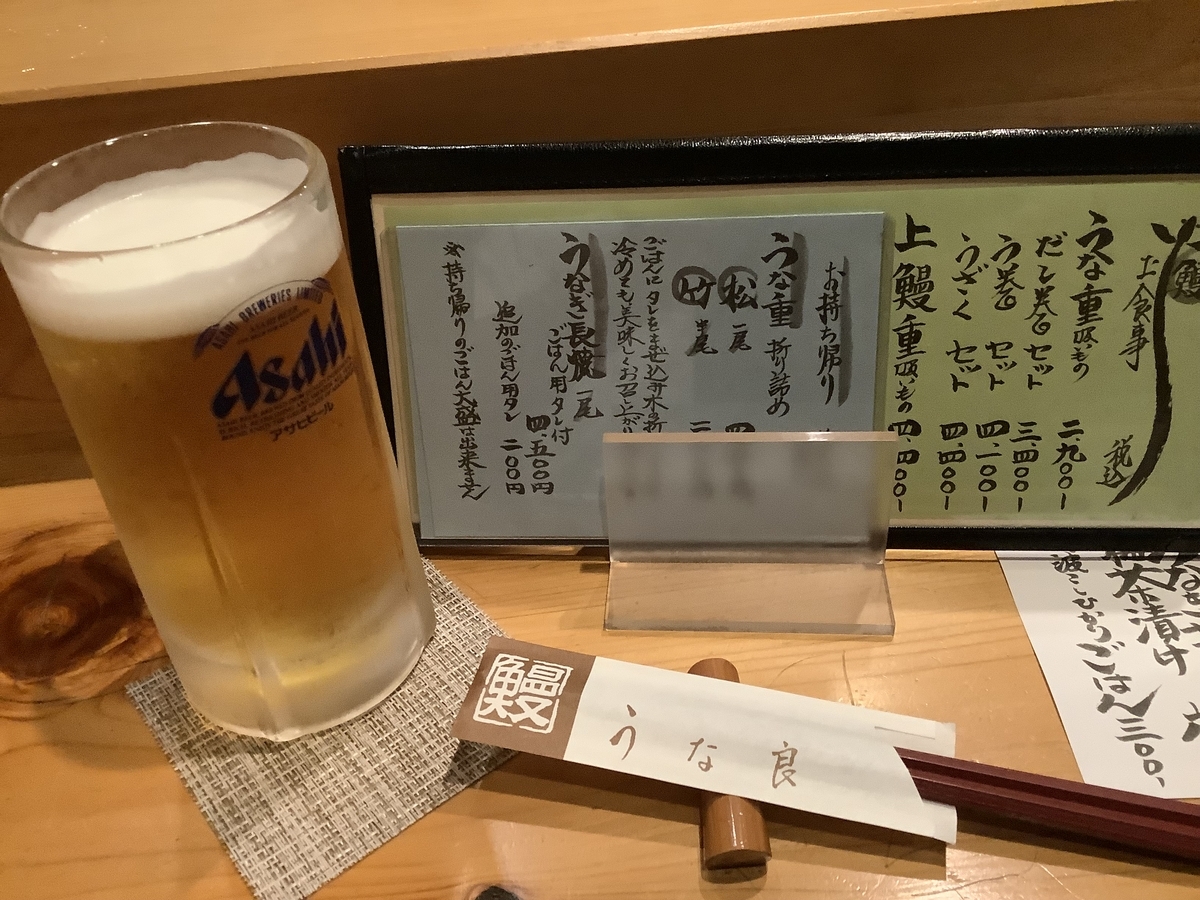 ASAHI BREWERIES LIMITED
Asahi
アサヒビール
お食事
税込
うな重 吸いもの 二、九〇〇-
だし巻き セット 三、四〇〇-
う巻き セット 四、一〇〇-
うざく セット 四、四〇〇-
上鰻重 吸いもの 四、四〇〇-
お持ち帰り
うな重 折り詰め
松 一尾
竹 半尾
ごはんにタレをまぜ込み木の折
冷めても美味しくお召し上がり
うなぎ長焼 一尾
ごはん用タレ付 四、五〇〇円
追加のごはん用タレ 二〇〇円
※持ち帰りのごはん大盛は出来ません
茶漬け
ごはん 三〇〇、
鰻
うな良